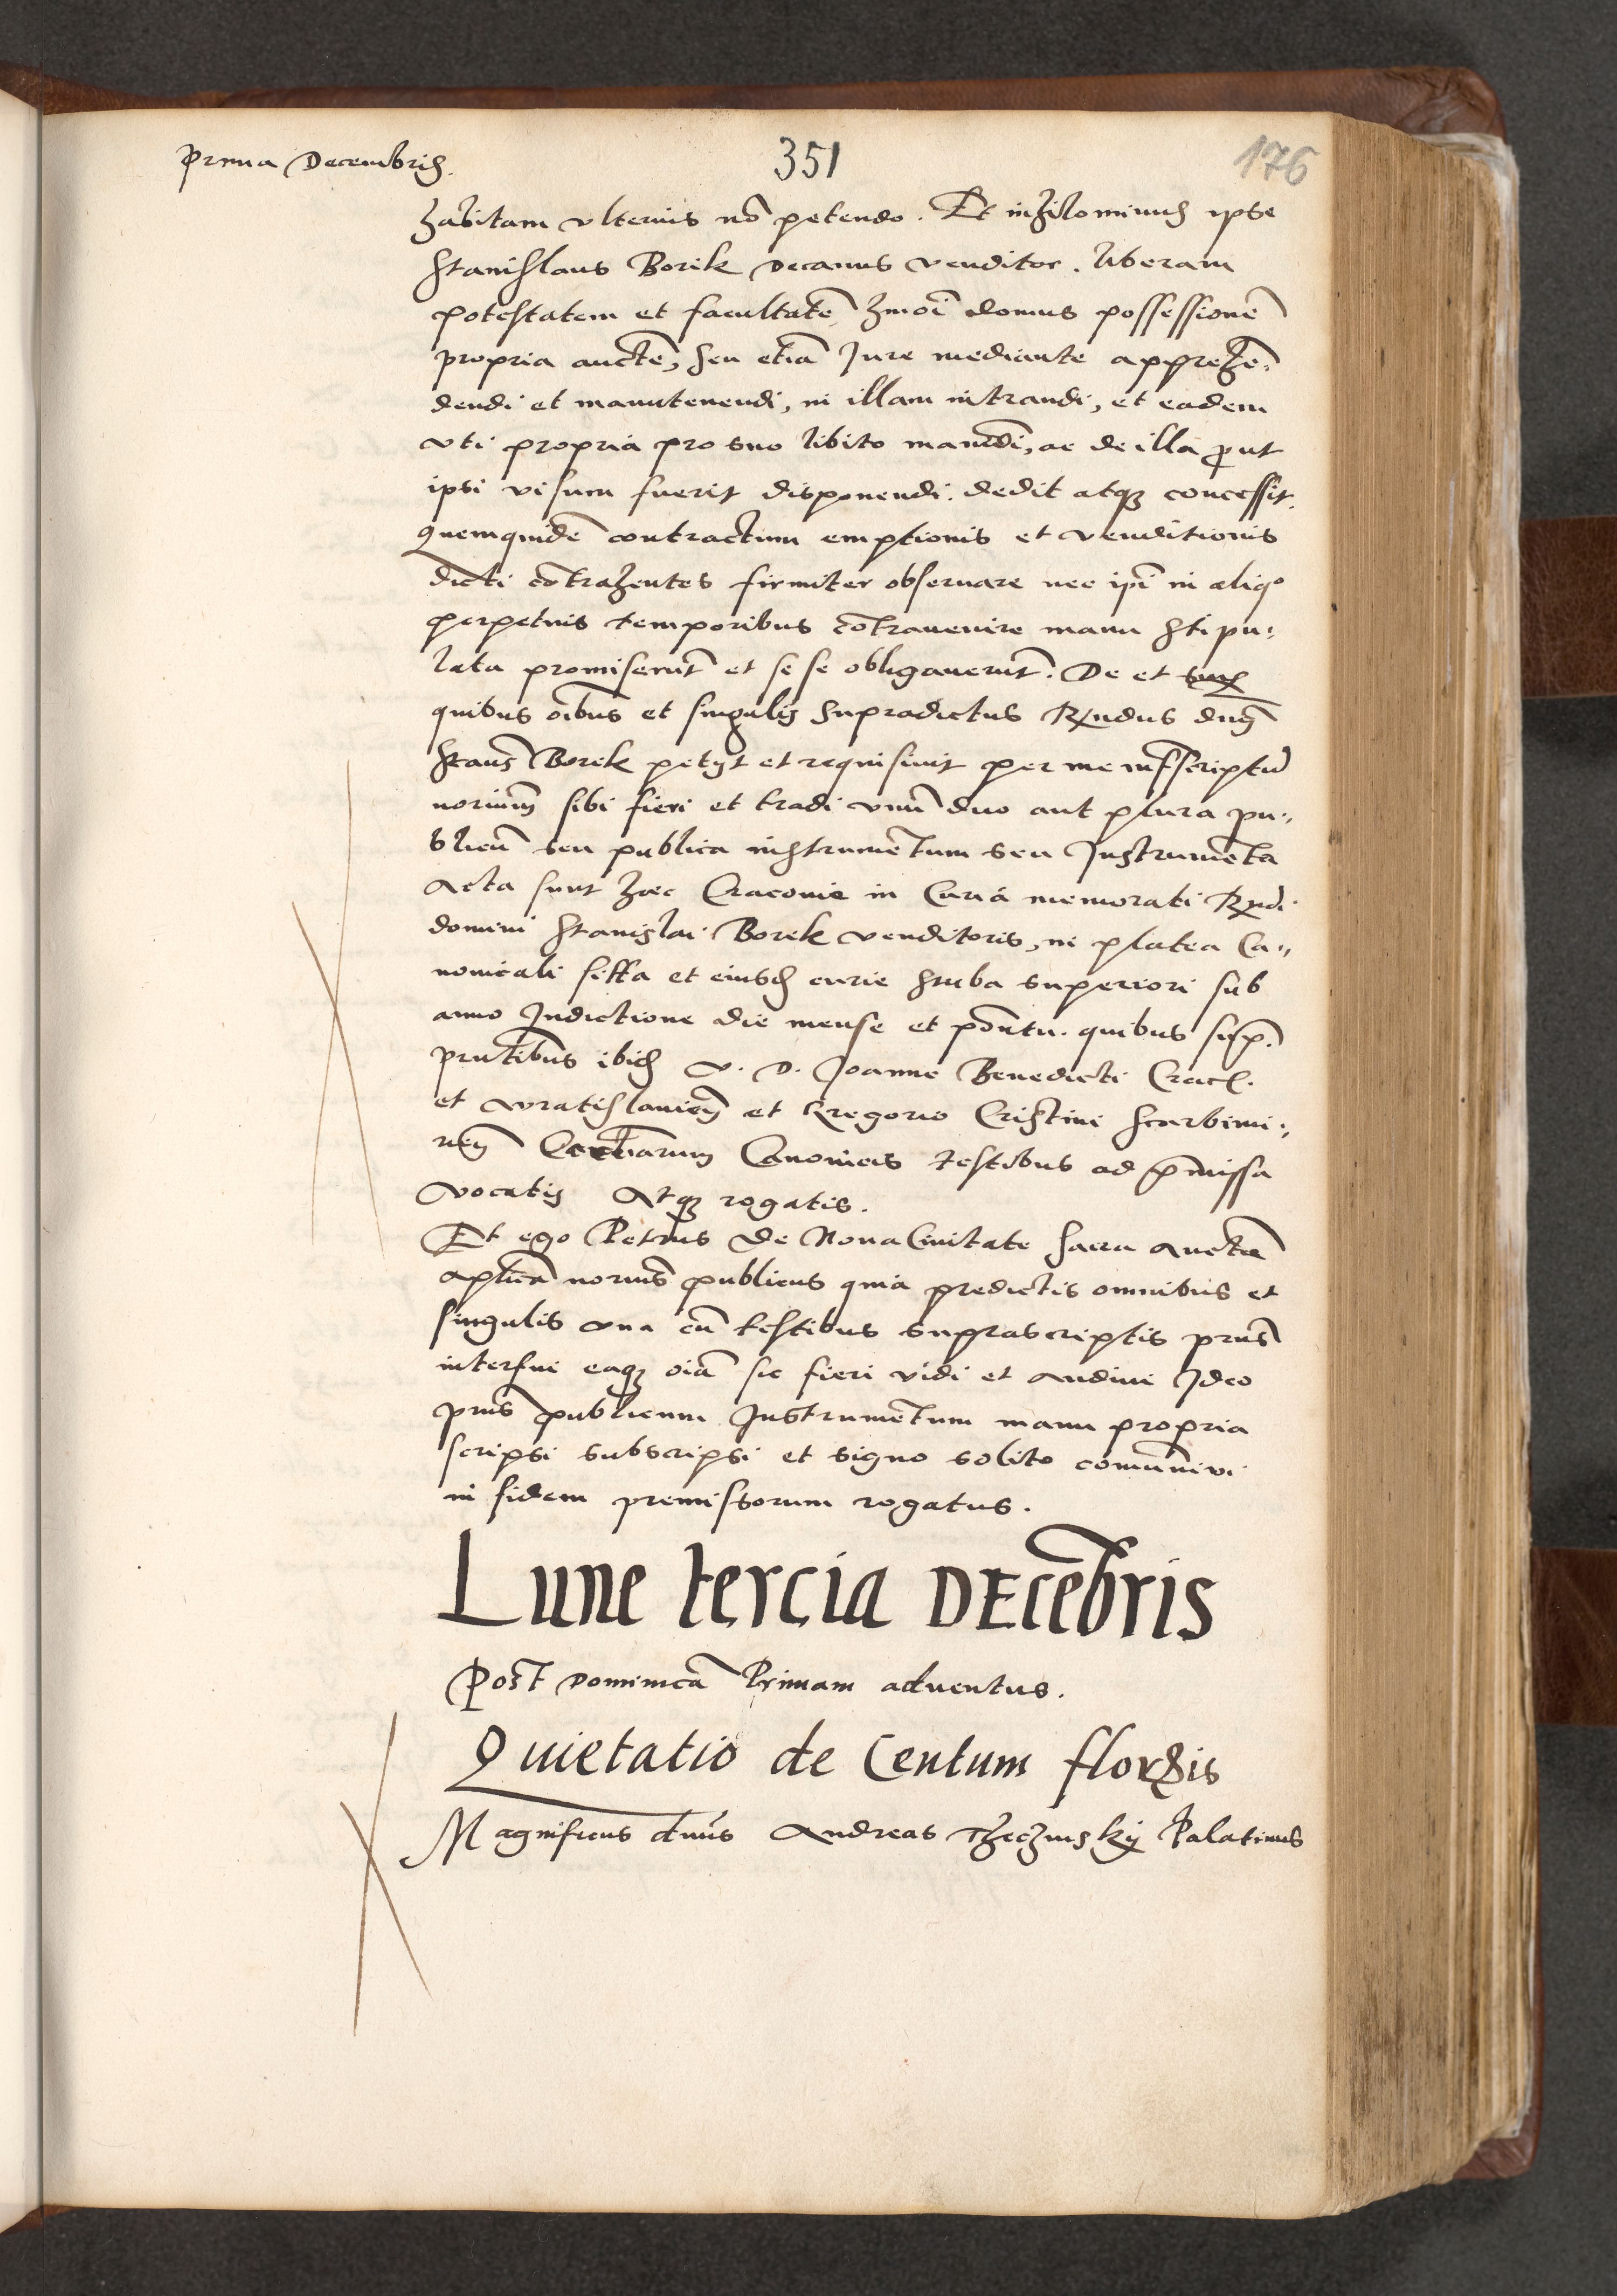 prima Decembris.
351
176
habitam ulterius nō petendo. Et nihilominus ipse
Stanislaus Borek Decanus venditor. liberam
potestatem et facultatē hmōi domus possessionē
propria aucte, seu etiā Jure mediante apprehē,,
dendi et manutenendi, in illam intrandi, et eadem
uti propria pro suo libito manēdi, ac de illa put
ipsi visum fuerit disponendi. dedit atq3 concessit.
Quemquidē contractum emptionis et venditionis
dicti cōtrahentes firmiter observare nec ipī in aliqo
perpetuis temporibus cōtravenire manu stipu,,
lata promiserūt et se se obligaverūt. De et sup
quibus oībus et singulis supradictus Rndus dns
Staus Borek petyt et requisivit per me infrscriptū
noriūm sibi fieri et tradi unū duo aut plura pu,,
blicū seu publica instrumētum seu Instrumēta
Acta sunt haec Cracovie in Curia memorati Rndi
domini Stanislai Borek venditoris, in platea Ca,,
nonicali sitta et eiusd curie stuba superiori sub
anno Indictione die mense et pōntu. quibus sup.
pntibus ibid v. D. Joanne Benedicti Cracỻ.
et wratislavien et Gregorio Cristini Scarbimi,,
rien Eccliarum Canonicis testibus ad pmissa
vocatis Atq3 rogatis.
Et ego Petrus de Nova Civitate Sacra aucte
aplica norius publicus quia predictis omnibus et
singulis una cū testibus suprascriptis pns
interfui eaq3 oīa sic fieri vidi et audivi Ideo
pns publicum Instrumētum manu propria
scripsi subscripsi et signo solito comūnivi
in fidem premissorum rogatus.
Lune tercia DEcēbris
Post Dominicā Primam adventus.
Quietatio de Centum flor
Magnificus dnus Andreas Palatinus